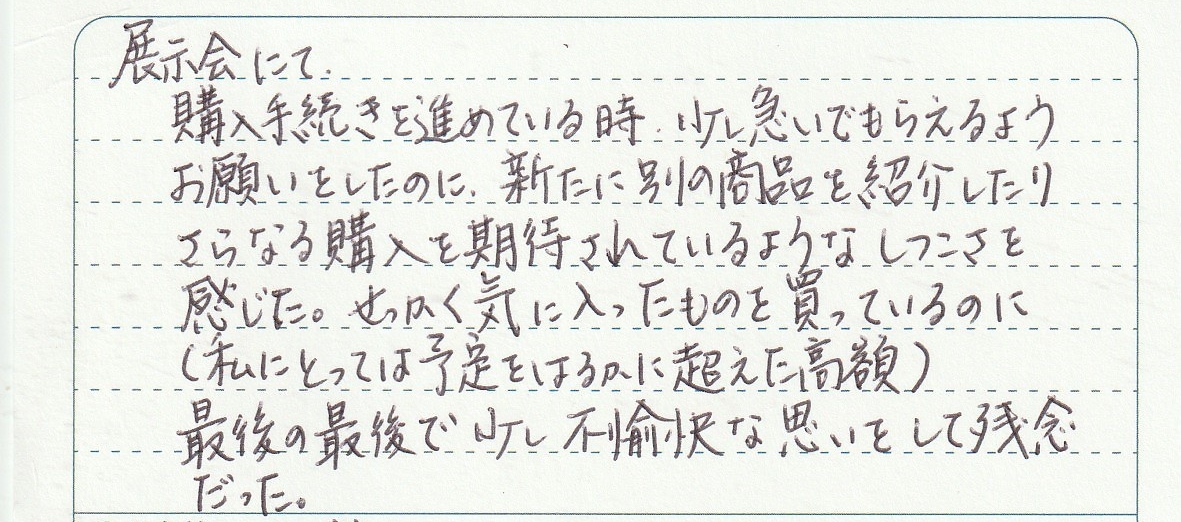 展示会にて.
購入手続きを進めている時、少し急いでもらえるよう
お願いをしたのに、新たに別の商品を紹介したり
さらなる購入を期待されているようなしつこさを
感じた。せっかく気に入ったものを買っているのに
(私にとっては予定をはるかに超えた高額)
最後の最後で少し不愉快な思いをして残念
だった。